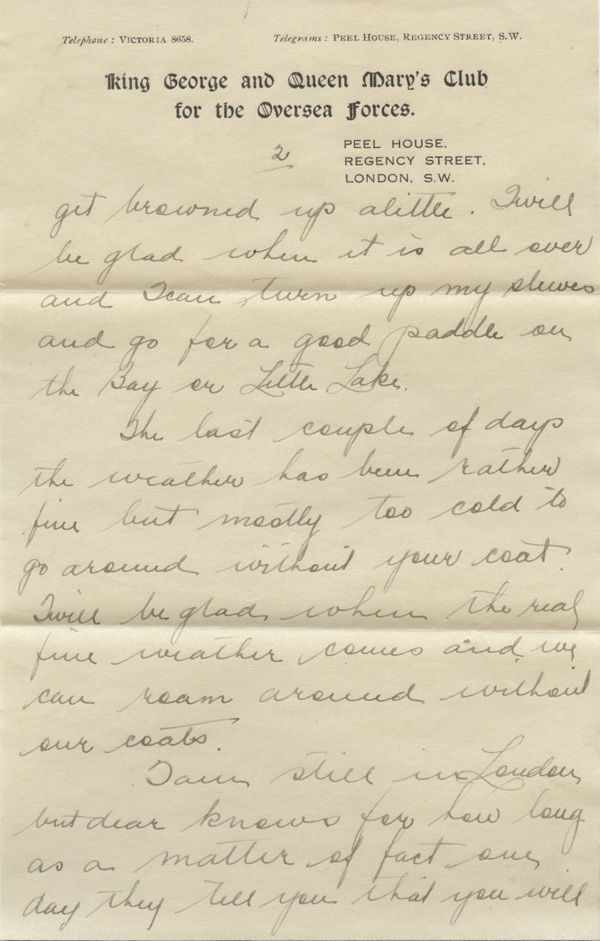 Telephone: VICTORIA 8658. Telegrams: PEEL HOUSE, REGENCY STREET, S.W.
King George and Queen Mary's Club
for the Oversea Forces.
2
PEEL HOUSE,
REGENCY STREET,
LONDON, S.W.
get browned up alittle. I will
be glad when it is all over
and I can turn up my sleeves
and go for a good paddle on
the Bay or Little Lake.
The last couple of days
the weather has been rather
fine but mostly too cold to
go around without your coat.
I will be glad when the real
fine weather comes and we
can roam around without
our coats.
I am still in London
but dear knows for how long
as a matter of fact one
day they tell you that you will